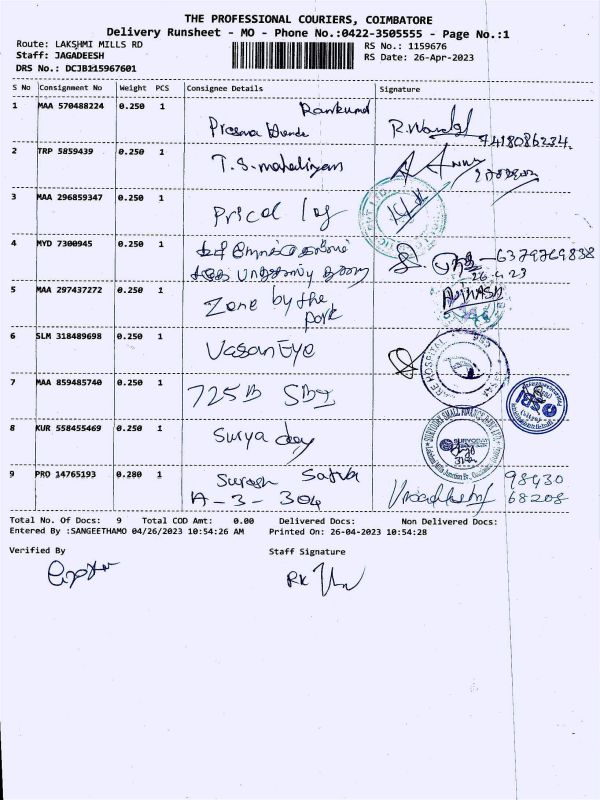 THE PROFESSIONAL COURIERS, COIMBATORE
Delivery Runsheet - MO - Phone No.:0422-3505555 - Page No.:1
Route: LAKSHMI MILLS RD RS No.: 1159676
Staff: JAGADEESH RS Date: 26-Apr-2023
DRS No.: DCJB115967601
S No Consignment No Weight PCS Consignee Details Signature
1 MAA 570488224 0.250 1 Ramkumar
9418086234.
2 TRP 5859439 0.250 1 T.S. mahalingam
3 MAA 296859347 0.250 1 Pricol log
4 MYD 7300945 0.250 1
6379769838
26.4.23
5 MAA 297437272 0.250 1 Zone by the AVINASH
park
6 SLM 318489698 0.250 1 Vasan Eye
7 MAA 859485740 0.250 1 725B SBI SBI
8 KUR 558455469 0.250 1 Surya day SURYODAY SMALL FINANCE BANK LTD.
9 PRO 14765193 0.280 1 Suresh 98430
A-3-304 68208
Total No. Of Docs: 9 Total COD Amt: 0.00 Delivered Docs: Non Delivered Docs:
Entered By :SANGEETHAMO 04/26/2023 10:54:26 AM Printed On: 26-04-2023 10:54:28
Verified By Staff Signature
RK